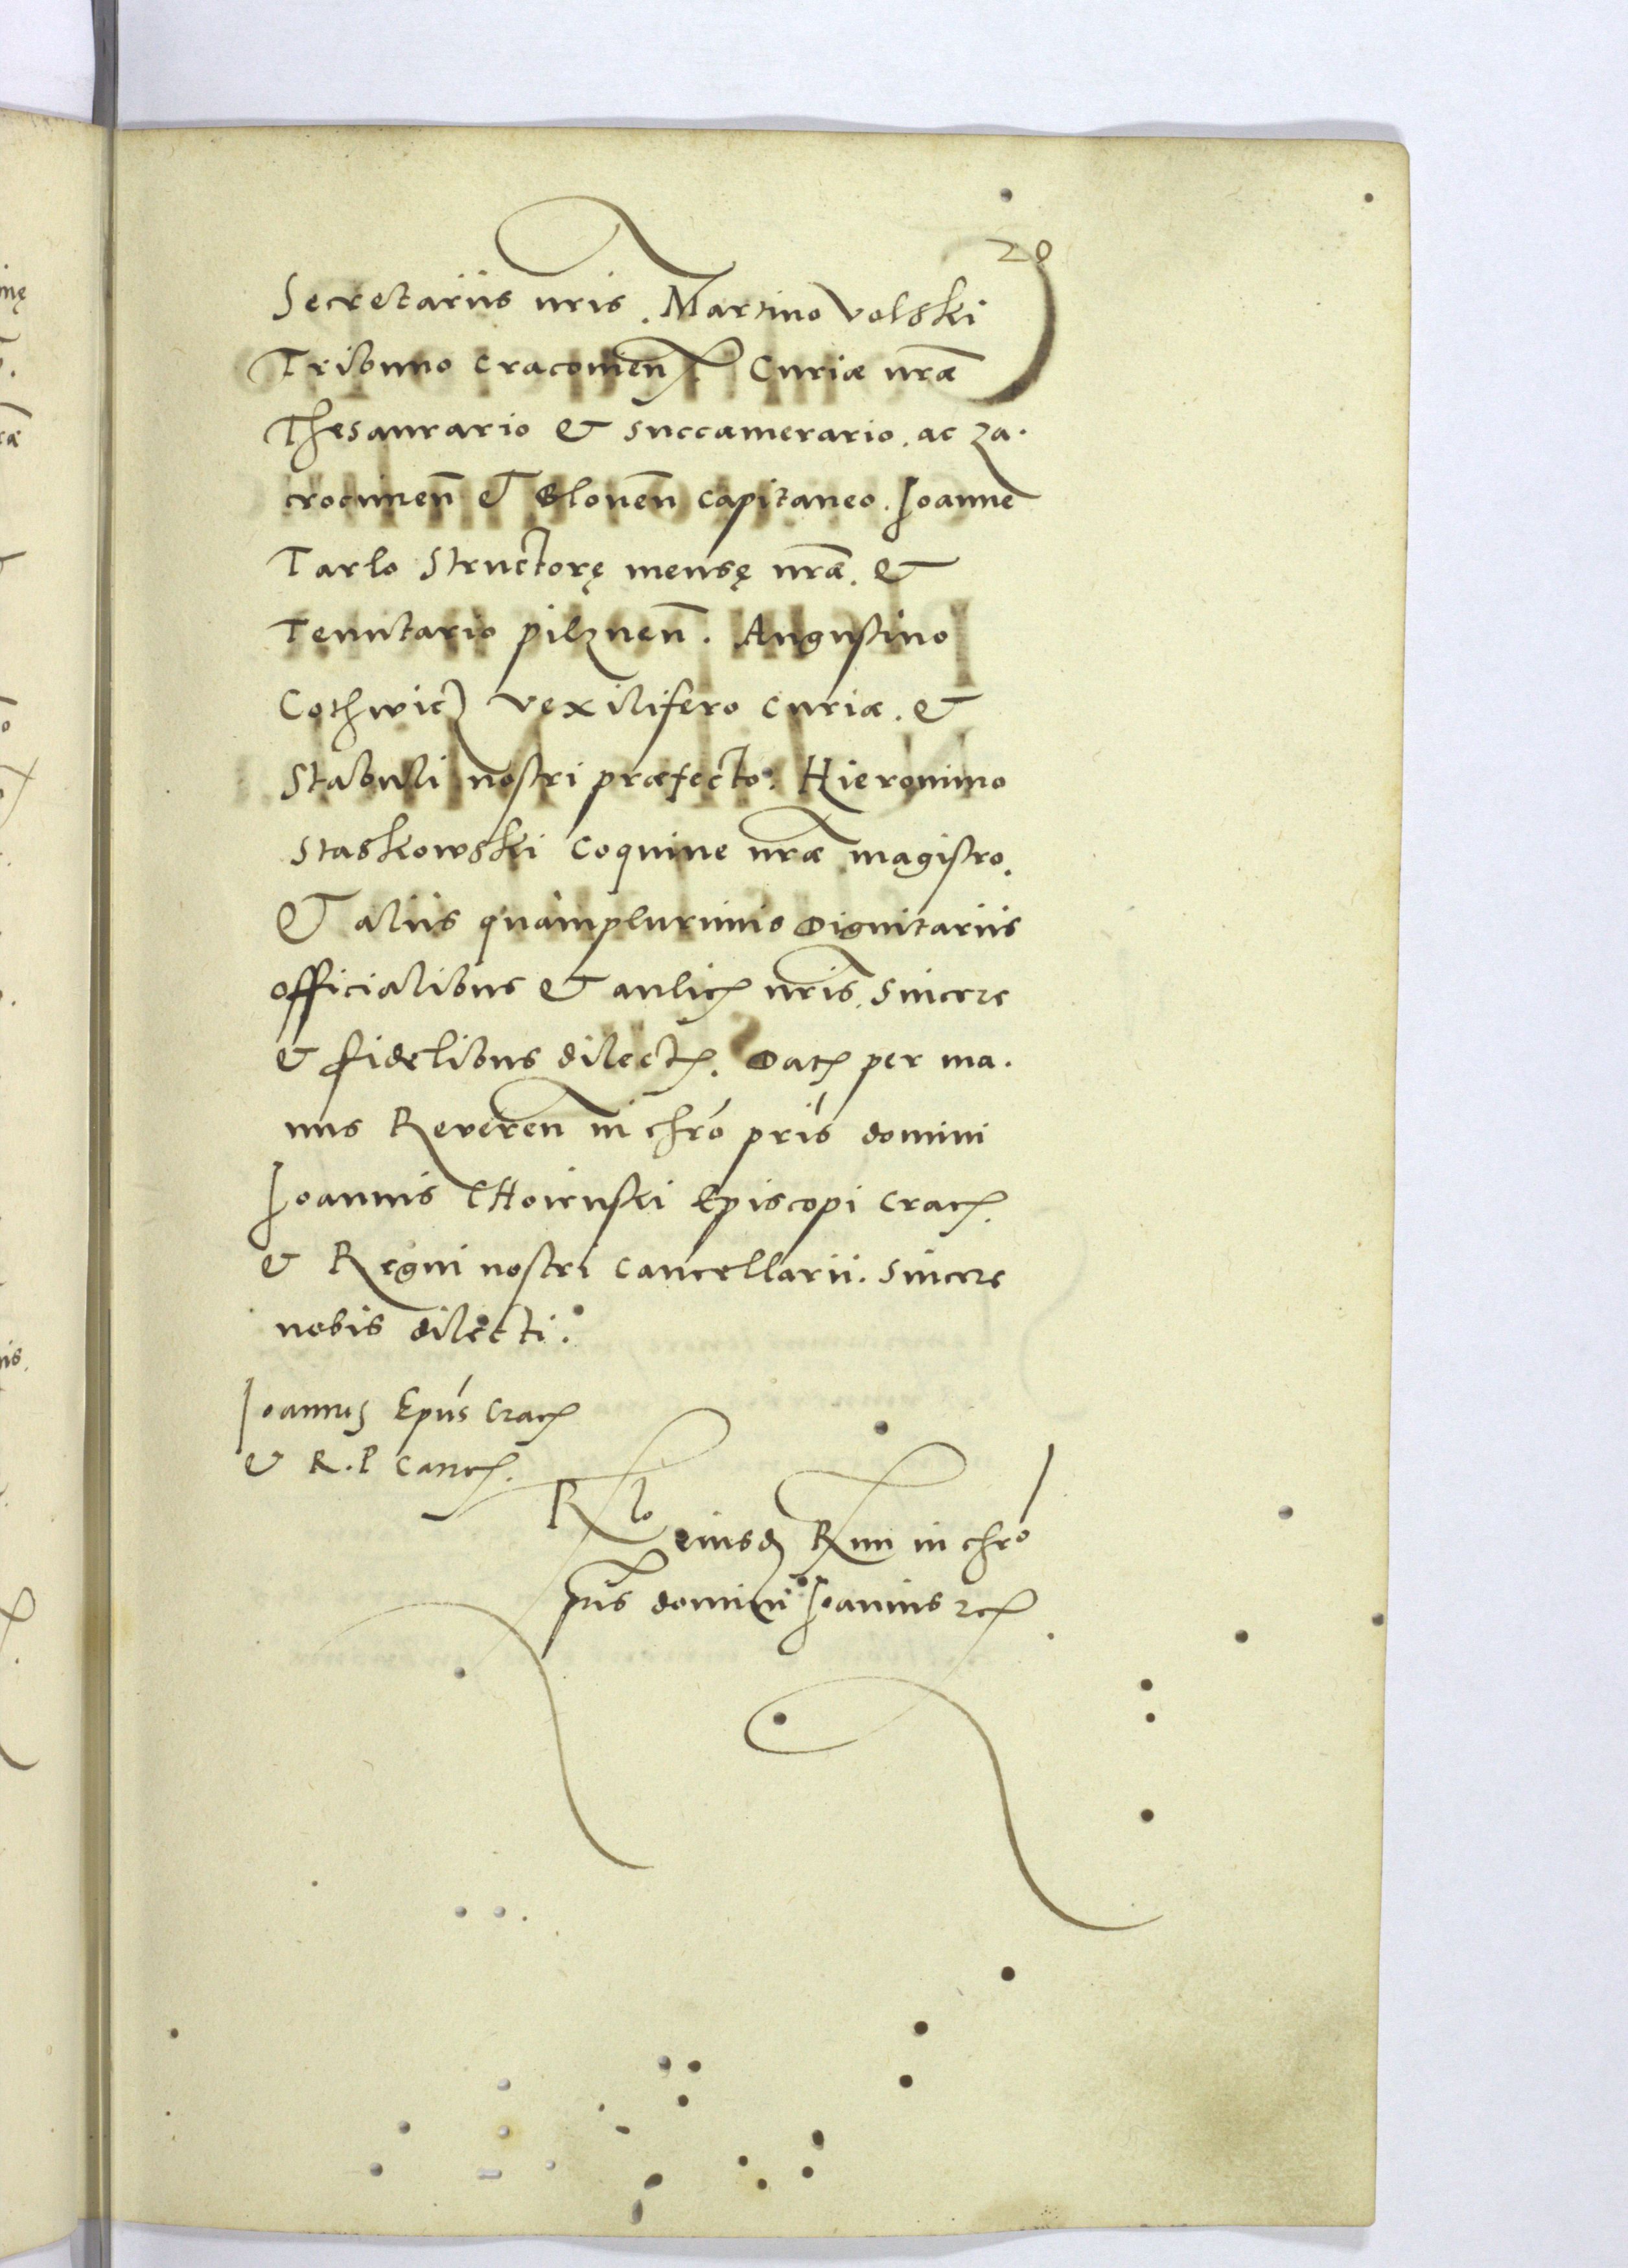 20
Secretariis nr̃is. Martino Volski
Tribuno Cracouien̄. Curiæ nr̃æ
Thesaurario & succamerario. ac Za.
crocimen̄ & Blonen̄ Capitaneo. Joanne
Tarlo Structorę mensę nr̃æ. &
Tenutario pilznen̄. Augustino
Cothwicz vexilifero Curiæ. &
Stabuli nostri præfecto. Hieronimo
Staskowski Coquine nr̃æ magistro.
& aliis quàmplurimis Dignitariis
officialibus & aulicꝭ nr̃is. Sincere
& fidelibus dilectꝭ. Datꝭ per ma.
nus Reveren̄ in chr̃o pr̃is domini
Joannis CHoienski Episcopi Cracꝭ.
& Regni nostri Cancellarii. Sincere
nobis dilecti.
Joannes Ep̃us Cracꝭ
& R. P Cancꝭ.
Rlo eiusdꝫ R̃mi in chr̃o
pr̃is domini Joannis zcꝭ.